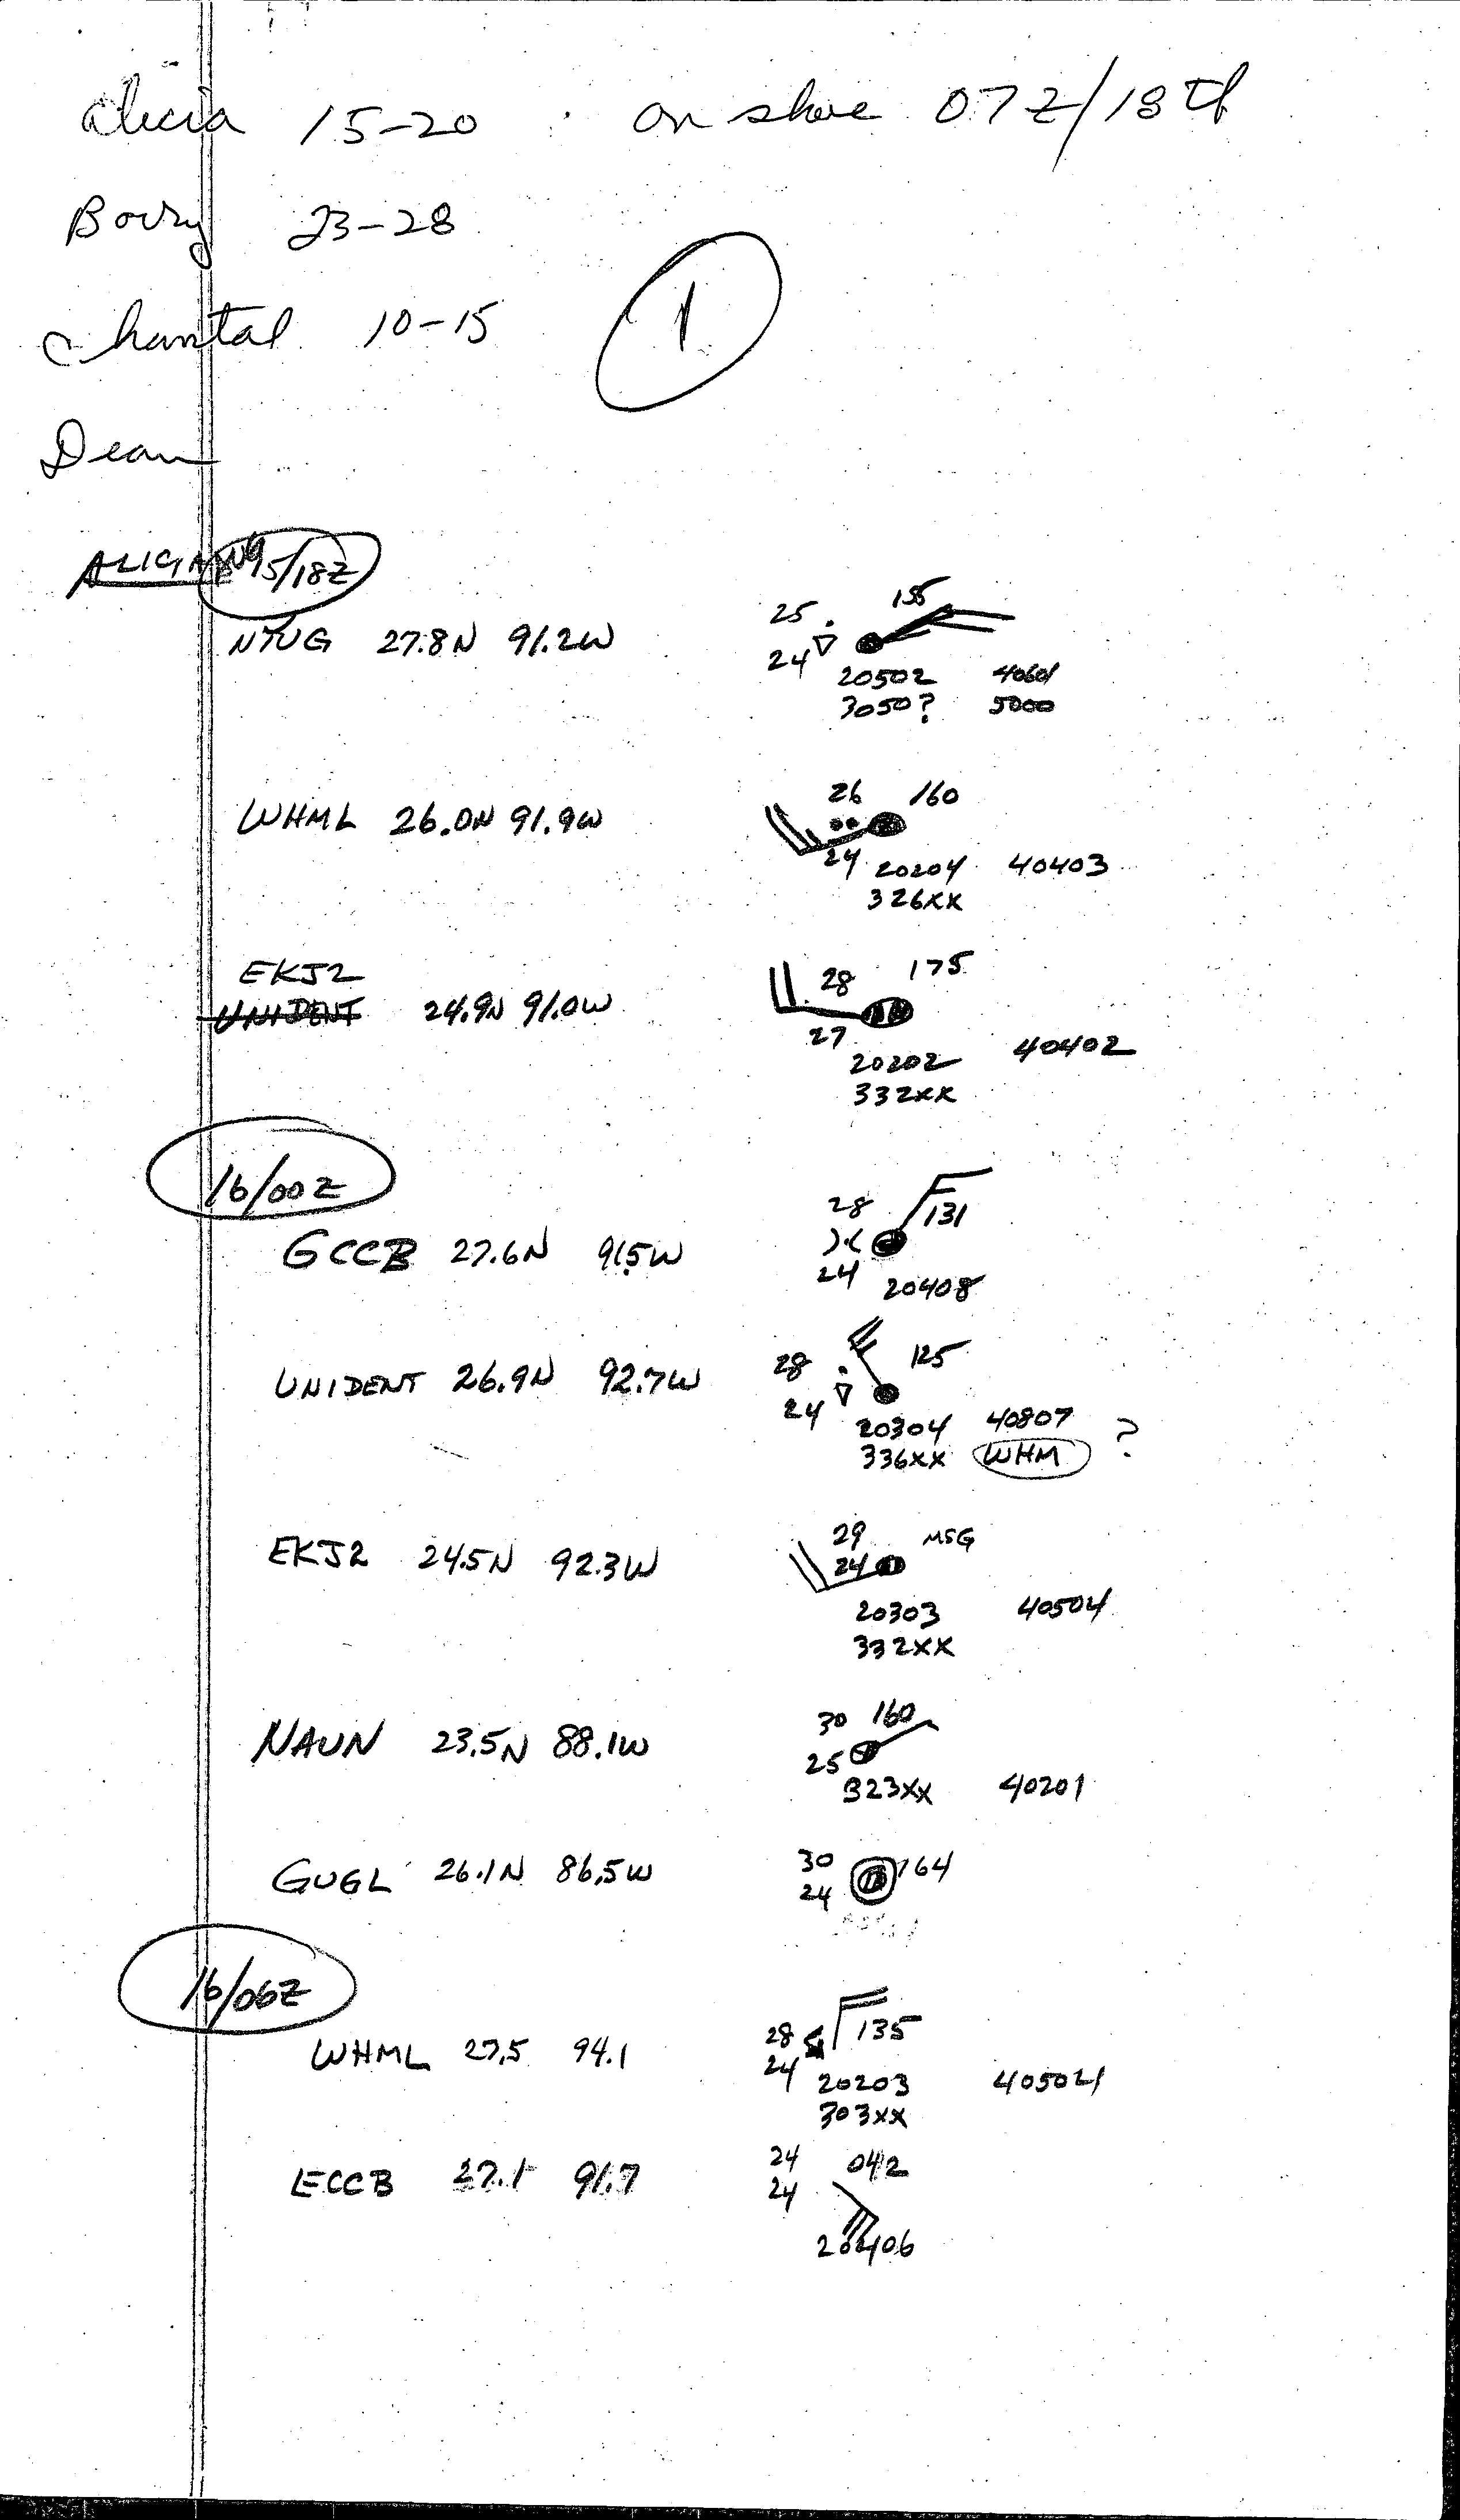 Alicia 15-20 on shore 07Z/18th
Barry 23-28
Chantal 10-15
1
Dean
15/18Z
27.8N 91.2W 25 155
24 20502 40601
3050? 5000
WHML 26.0N 91.9W 26 160
24 20204 40403
326XX
EKJ2 28 175
UNIDENT 24.9N 91.0W 27
20202 40402
332XX
16/00Z
28 131
GCCB 27.6N 91.5W
24 20408
UNIDENT 26.9N 92.7W 28 125
24 20304 40807 ?
336XX WHM
EKJ2 24.5N 92.3W 29 MSG
24
20303 40504
332XX
NAUN 23.5N 88.1W 30 160
25
323XX 40201
GUGL 26.1N 86.5W 30 164
24
16/06Z
WHML 27.5 94.1 28 135
24 20203
303XX
ECCB 27.1 91.7 24 042
24
20406